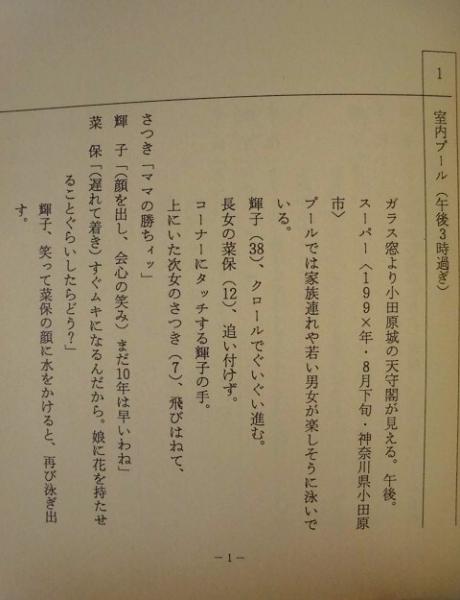 1　室内プール（午後3時過ぎ）
ガラス窓より小田原城の天守閣が見える。午後。
スーパー〈199×年・8月下旬・神奈川県小田原
市〉
プールでは家族連れや若い男女が楽しそうに泳いで
いる。
輝子（38）、クロールでぐいぐい進む。
長女の菜保（12）、追い付けず。
コーナーにタッチする輝子の手。
上にいた次女のさつき（7）、飛びはねて、
さつき「ママの勝ちィッ」
輝　子「（顔を出し、会心の笑み）まだ10年は早いわね」
菜　保「（遅れて着き）すぐムキになるんだから。娘に花を持たせ
ることぐらいしたらどう？」
輝子、笑って菜保の顔に水をかけると、再び泳ぎ出
す。
－1－